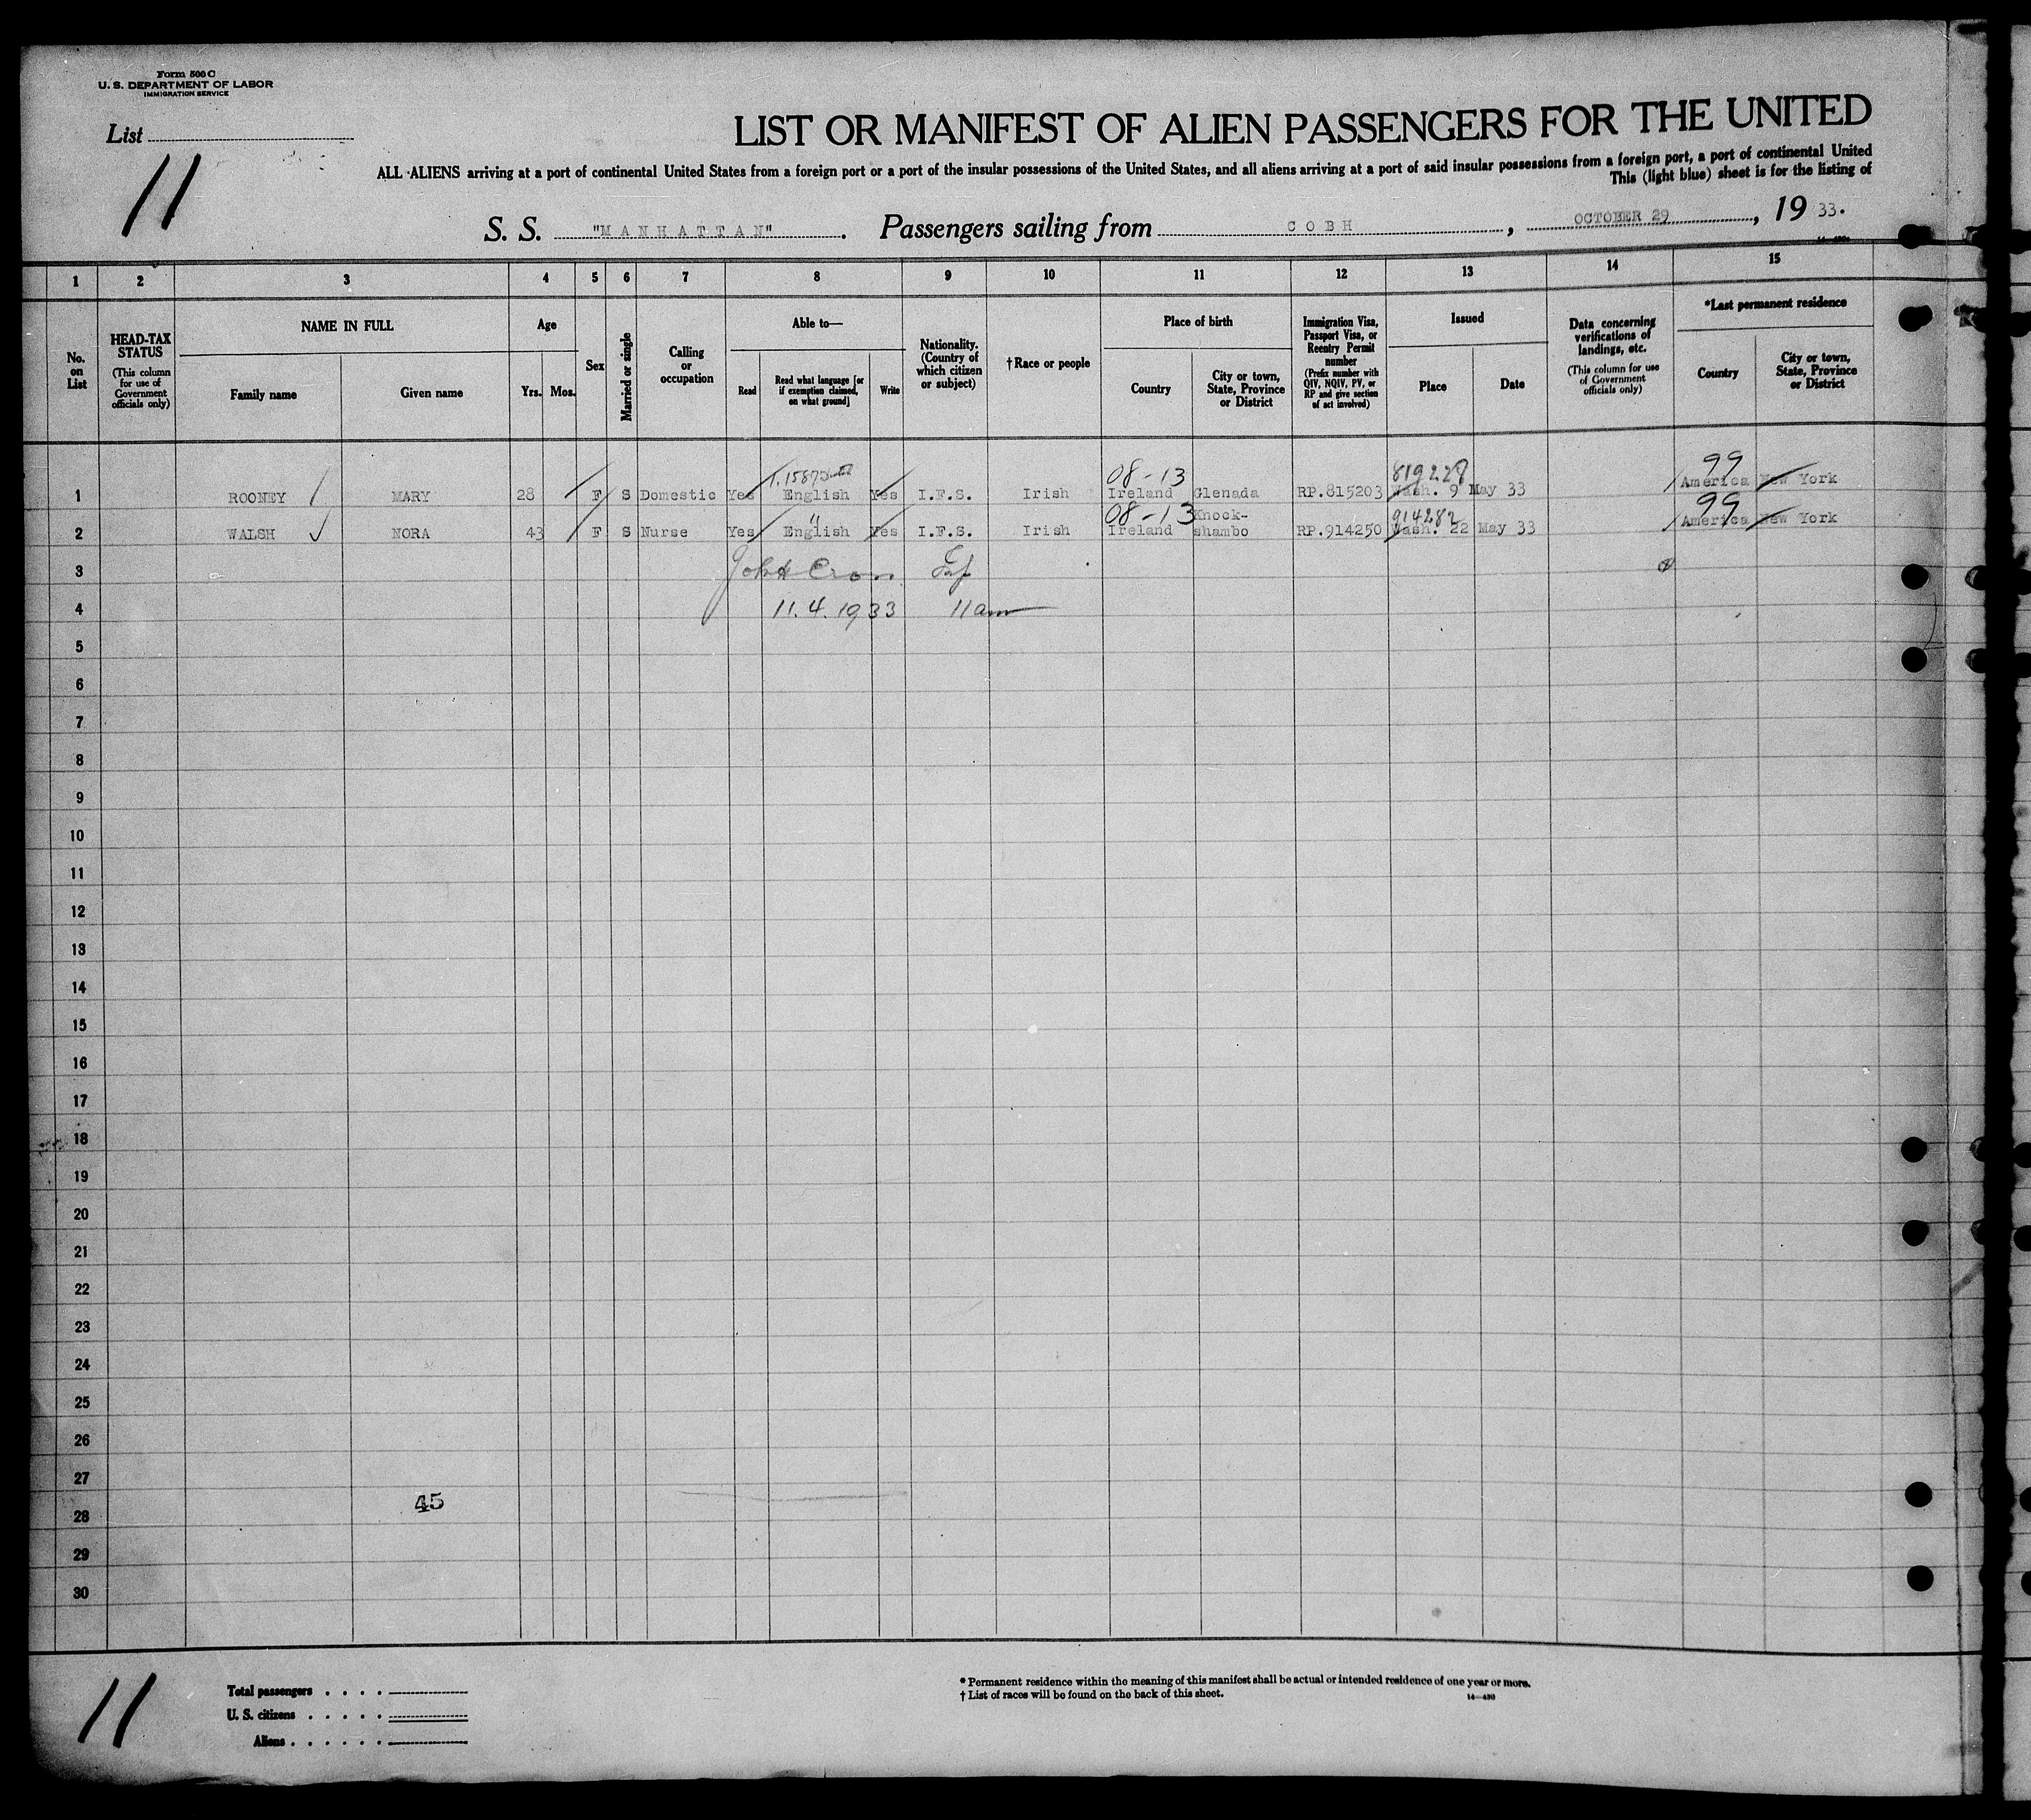 Form 500 C
U. S. DEPARTMENT OF LABOR
IMMIGRATION SERVICE
List
11
LIST OR MANIFEST OF ALIEN PASSENGERS FOR THE UNITED
ALL ALIENS arriving at a port of continental United States from a foreign port or a port of the insular possessions of the United States, and all aliens arriving at a port of said insular possessions from a foreign port, a port of continental United
This (light blue) sheet is for the listing of
S. S. "MANHATTAN". Passengers sailing from COBH, OCTOBER 29, 19 33.
1 2 3 4 5 6 7 8 9 10 11 12 13 14 15
No. on List
HEAD-TAX STATUS
(This column for use of Government officials only)
NAME IN FULL
Family name
Given name
Age
Yrs. Mos.
Sex
Married or single
Calling or occupation
Able to—
Read
Read what language [or if exemption claimed, on what ground]
Write
Nationality. (Country of which citizen or subject)
†Race or people
Place of birth
Country
City or town, State, Province or District
Immigration Visa, Passport Visa, or Reentry Permit number
(Prefix number with QIV, NQIV, PV, or RP and give section of act involved)
Issued
Place
Date
Data concerning verifications of landings, etc.
(This column for use of Government officials only)
*Last permanent residence
Country
City or town, State, Province or District
08-13 819228 99
1 ROONEY MARY 28 F S Domestic Yes English Yes I.F.S. Irish Ireland Glenada RP.815203 Wash. 9 May 33 America New York
" 08-13 914282 99
2 WALSH NORA 43 F S Nurse Yes English Yes I.F.S. Irish Ireland Knock-shambo RP.914250 Wash. 22 May 33 America New York
3
4 11.4.1933 11am
5
6
7
8
9
10
11
12
13
14
15
16
17
18
19
20
21
22
23
24
25
26
27
45
28
29
30
11
Total passengers . . . .
U. S. citizens . . . . .
Aliens . . . . . .
* Permanent residence within the meaning of this manifest shall be actual or intended residence of one year or more.
† List of races will be found on the back of this sheet.
14—430